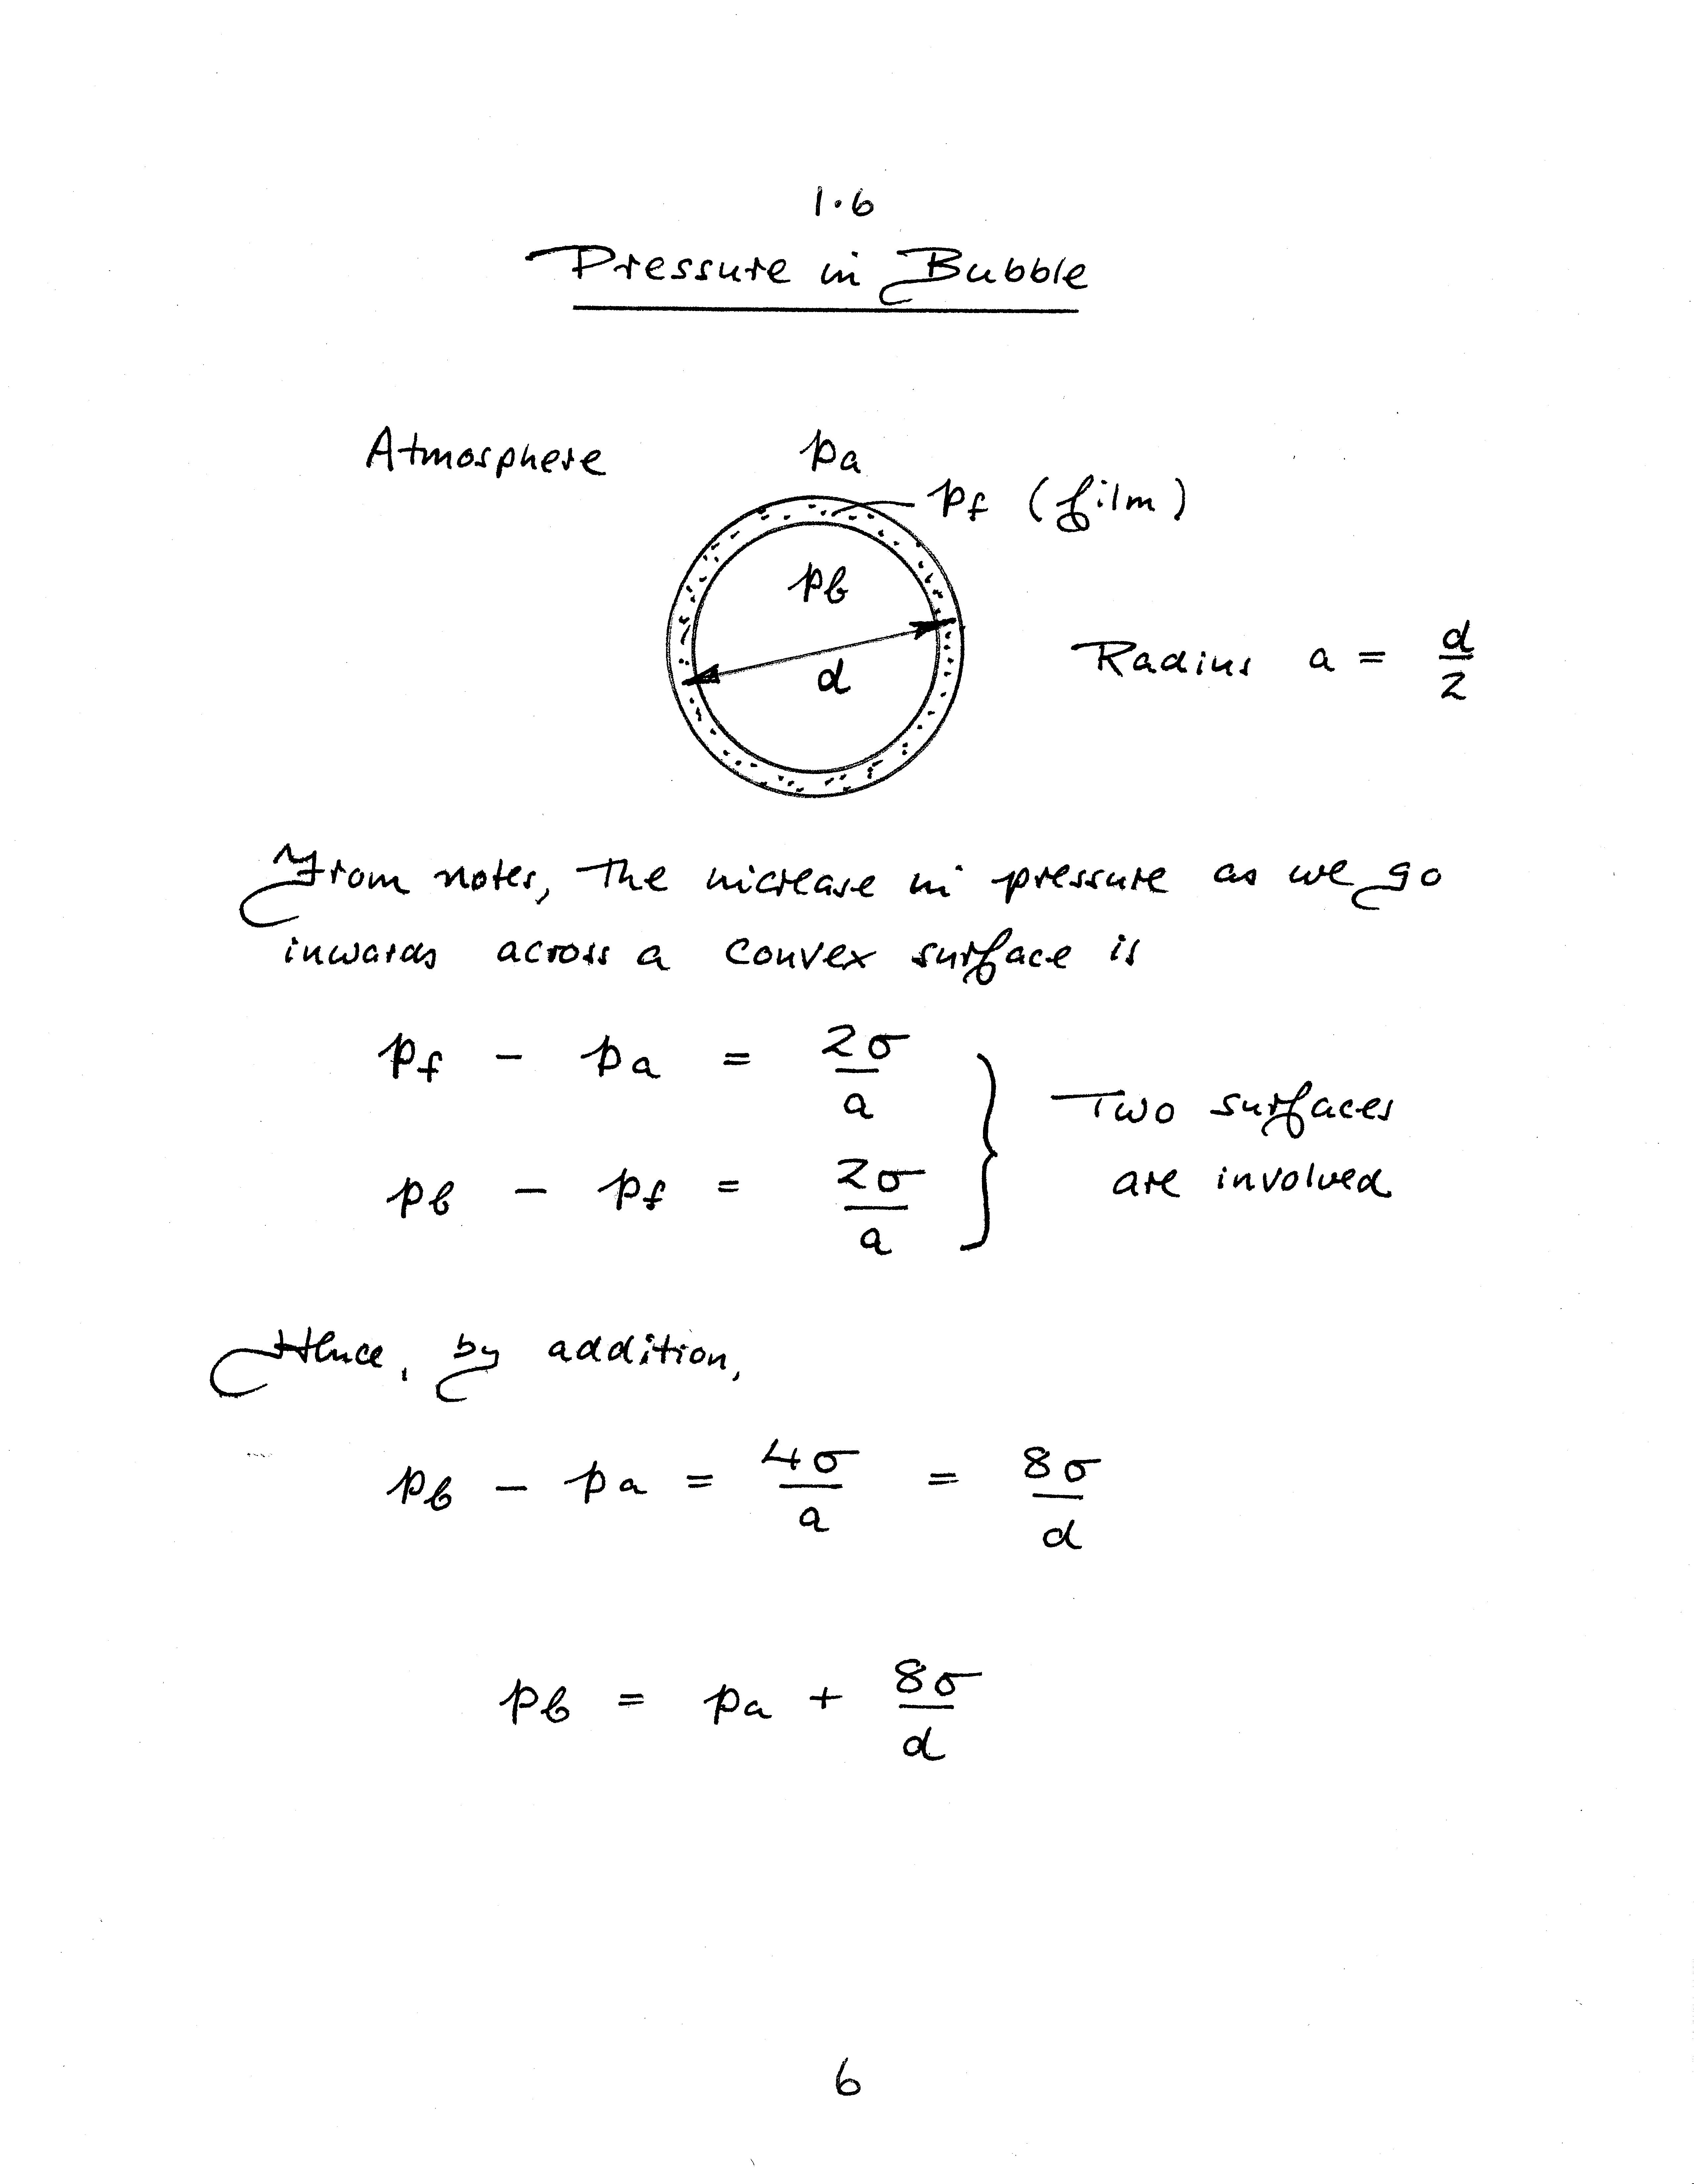 1.6
Pressure in Bubble
Atmosphere pa
pf (film)
pb
d
Radius a = d/2
From notes, the increase in pressure as we go
inwards across a convex surface is
pf - pa = 2σ/a
Two surfaces
pb - pf = 2σ/a
are involved
Hence, by addition,
pb - pa = 4σ/a = 8σ/d
pb = pa + 8σ/d
6